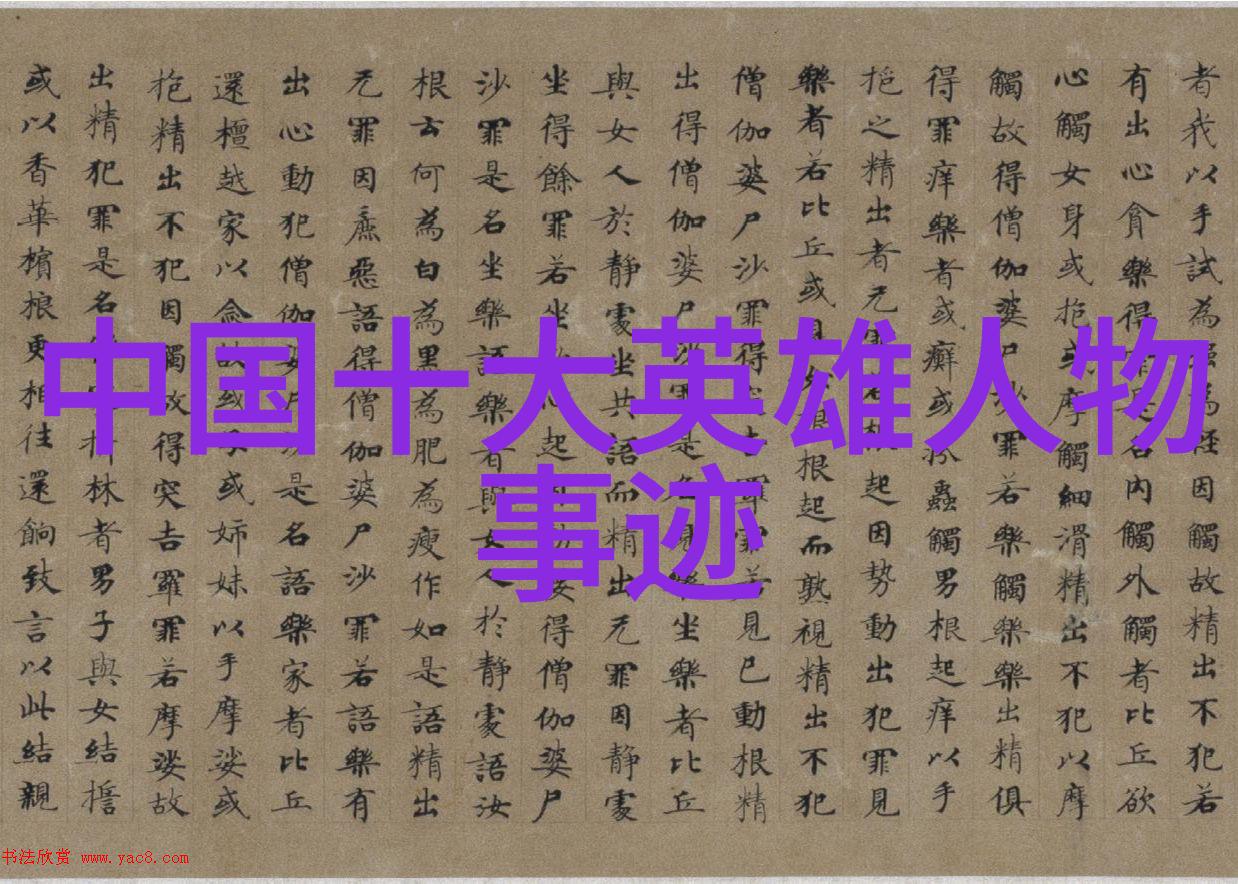 中国十大英雄人物
事迹
者我以手試為强為經因觸故精出不犯若
有出心貪樂得罪是名内觸外觸者比丘欲
心觸女身或抱或摩觸細滑精出不犯以摩
觸故得僧伽婆尸沙罪若樂觸樂樂出精俱
得罪痒樂者或癬或疥蟲觸男根起痒以手
抱之精出者无起因勢動出犯罪見
樂者若比丘或見女根根起而熟視精出不犯
僧伽婆尸沙罪得突吉羅罪若見已動根精
出得僧伽婆尸沙罪是名見樂坐樂者比丘
與女人於静處坐共語而精出无罪因静處
坐得餘罪若坐起得僧伽婆尸
沙罪是名坐樂語樂者與女人於静處語汝
根云何為白為黑為肥為瘦作如是語精出
无罪因麁惡語得僧伽婆尸沙罪若語樂有
出心動犯僧伽婆尸沙是名語樂家者比丘
還檀越家以念故或或姉妹以手摩娑或
抱精出不犯因觸故得突吉羅罪若摩娑故
出精犯罪是名折林者男子與女結誓
或以香華檳榔更相往還餉致言以此結親
书法欣赏 www.yac8.com